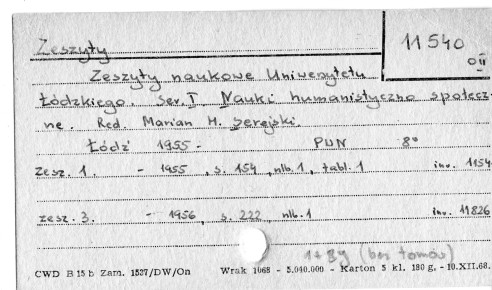 Zeszyty
11540
OII
Zeszyty naukowe Uniwersytetu
Łódzkiego. Ser. I. Nauki humanistyczno społecz-
ne. Red. Marian H. Serejski.
Łódź 1955 - PWN 8°
Zesz. 1. - 1955, s. 154, nlb. 1, tabl. 1 inw. 1154
zesz. 3. - 1956, s. 222, nlb. 1 inw. 11826
(bez tomów)
CWD B 15 b Zam. 1537/DW/On Wrak 1068 - 5.040.000 - Karton 5 kl. 180 g. - 10.XII.68.